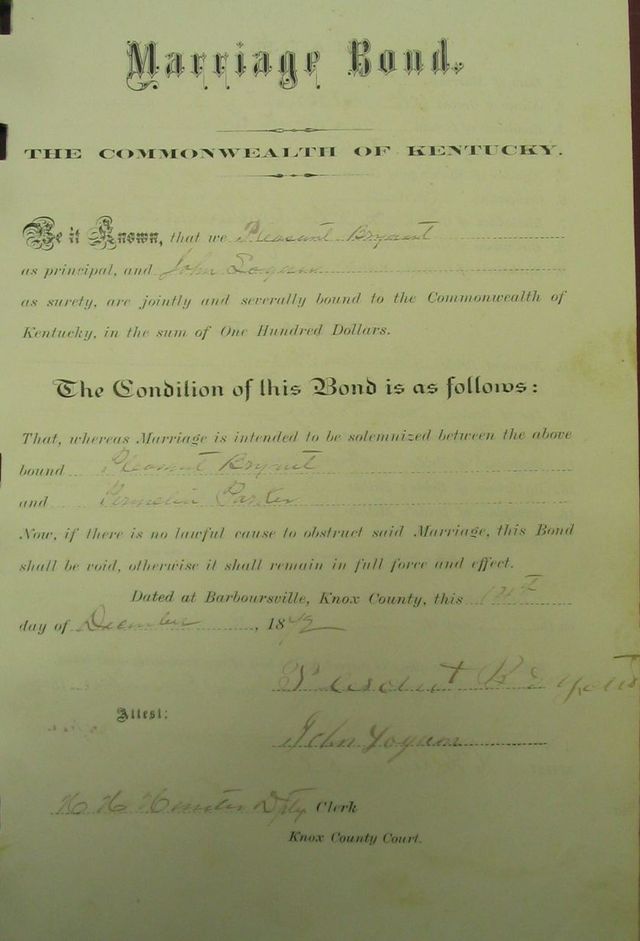 Marriage Bond.
THE COMMONWEALTH OF KENTUCKY.
Be it Known, that we Pleasant Bryant
as principal, and John Logan
as surety, are jointly and severally bound to the Commonwealth of
Kentucky, in the sum of One Hundred Dollars.
The Condition of this Bond is as follows:
That, whereas Marriage is intended to be solemnized between the above
bound Pleasant Bryant
and Permelia Parker
Now, if there is no lawful cause to obstruct said Marriage, this Bond
shall be void, otherwise it shall remain in full force and effect.
Dated at Barboursville, Knox County, this
day of December, 18
Attest:
John Logan
H H Dpty Clerk
Knox County Court.